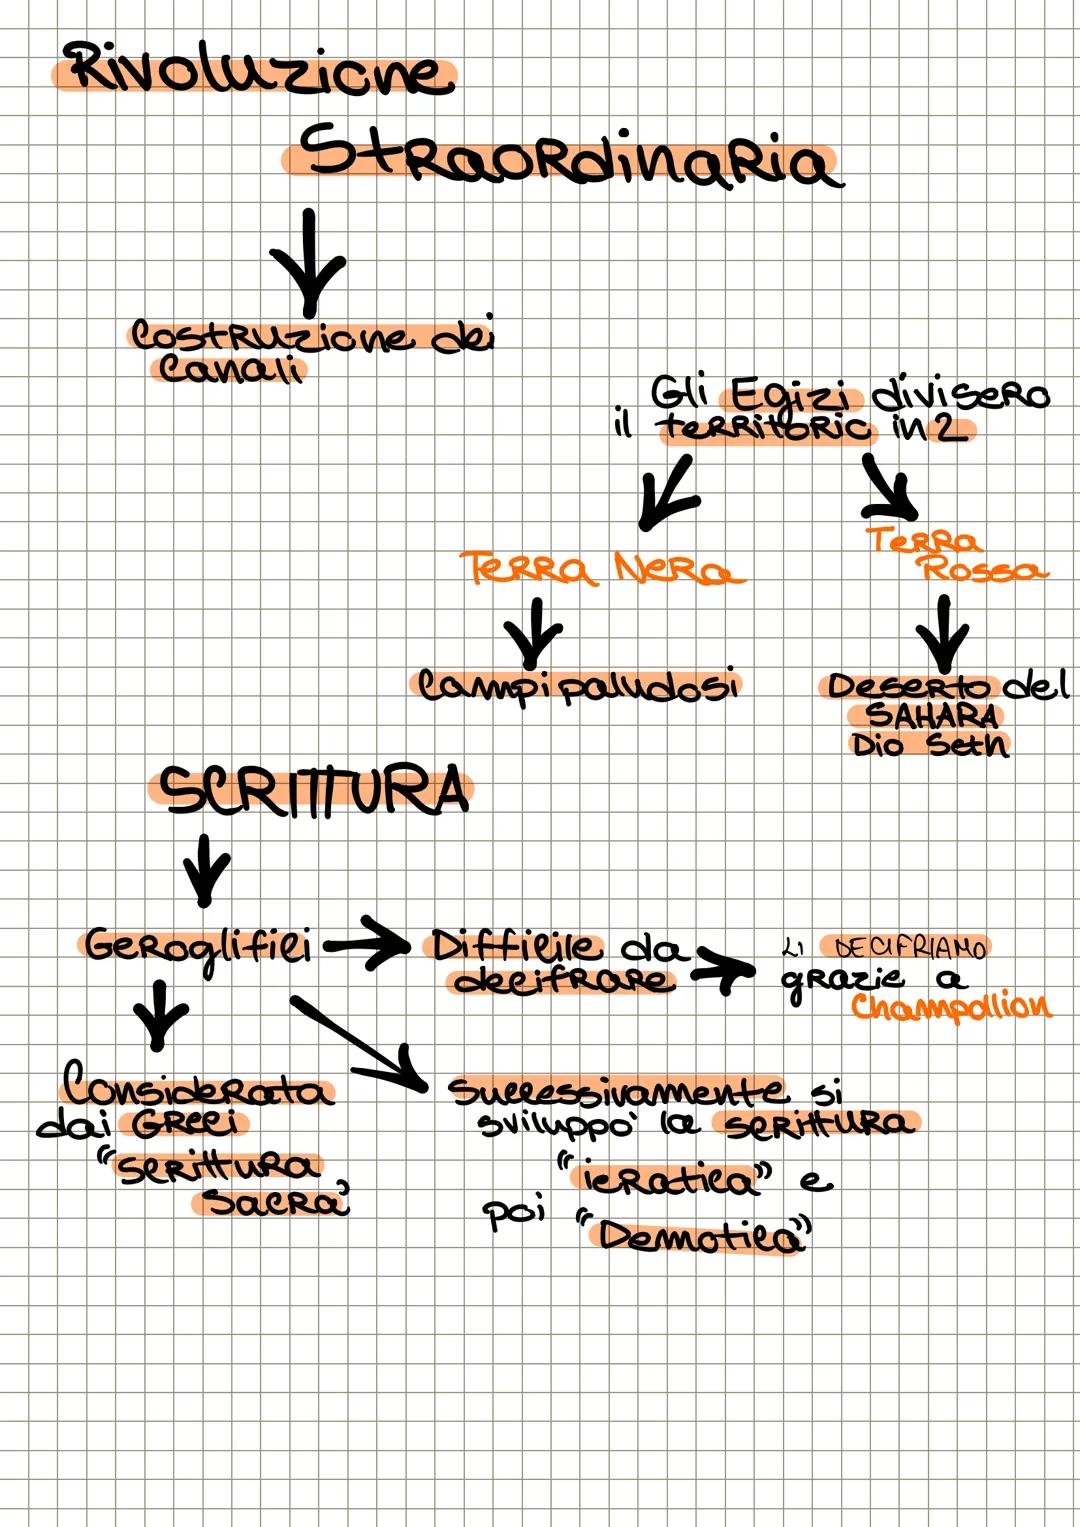 Rivoluzione
Straordinaria
Costruzione dei
Canali
Gli Egizi divisero
il territorio in 2
Terra Nera
Terra
Rossa
Campi paludosi
Deserto del
SAHARA
Dio Seth
SCRITTURA
Geroglifici
Difficile da
decifrare
Li DECIFRIAMO
grazie a
Champollion
Considerata
dai Greci
"scrittura
Sacra"
Successivamente si
sviluppò la scrittura
"ieratica" e
poi "Demotica"